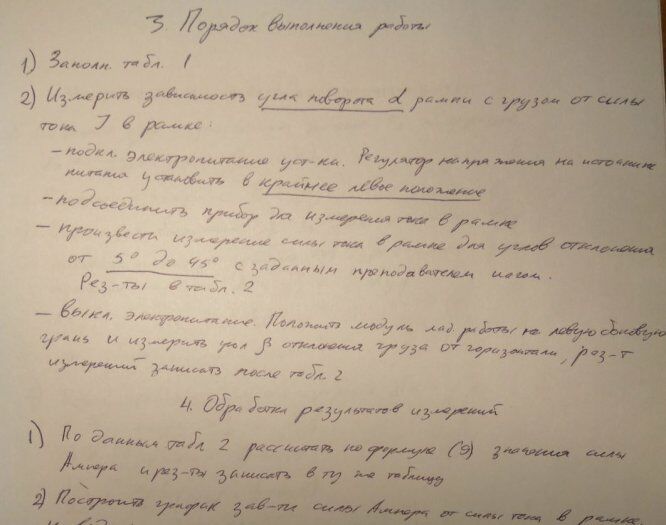 3. Порядок выполнения работы
1) Заполн. табл. 1
2) Измерить зависимость угла поворота α рамки с грузом от силы
тока J в рамке:
– подкл. электропитание уст-ки. Регулятор напряжения на источнике
питания установить в крайнее левое положение
– подсоединить прибор для измерения тока в рамке
– произвести измерение силы тока в рамке для углов отклонения
от 5° до 45° с заданным преподавателем шагом.
Рез-ты в табл. 2
– выкл. электропитание. Положить модуль лаб. работы на левую боковую
грань и измерить угол β отклонения груза от горизонтали, рез-т
измерений записать после табл. 2
4. Обработка результатов измерений
1) По данным табл 2 рассчитать по формуле (9) значения силы
Ампера и рез-ты записать в ту же таблицу
2) Построить график зав-ти силы Ампера от силы тока в рамке.